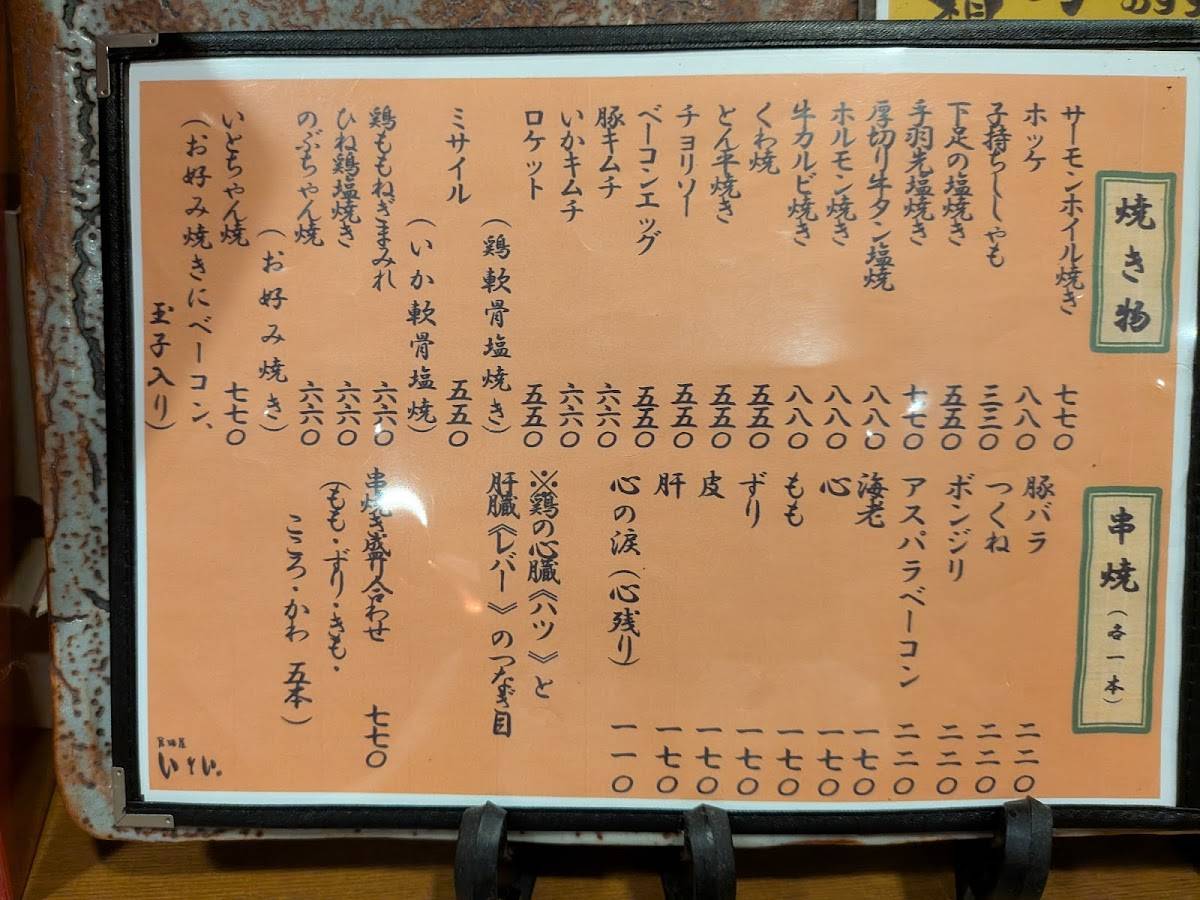 焼き物
サーモンホイル焼き 七七〇
ホッケ 八八〇
子持ちししゃも 三三〇
下足の塩焼き 五五〇
手羽先塩焼き 七七〇
厚切り牛タン塩焼 八八〇
ホルモン焼き 八八〇
牛カルビ焼き 八八〇
くわ焼 五五〇
とん平焼き 五五〇
チョリソー 五五〇
ベーコンエッグ 五五〇
豚キムチ 六六〇
いかキムチ 六六〇
ロケット 五五〇
(鶏軟骨塩焼き)
ミサイル 五五〇
(いか軟骨塩焼)
鶏ももねぎまみれ 六六〇
ひね鶏塩焼き 六六〇
のぶちゃん焼 六六〇
(お好み焼き)
いとちゃん焼 七七〇
(お好み焼きにベーコン、
玉子入り)
串焼(各一本)
豚バラ 二二〇
つくね 二二〇
ボンジリ 二二〇
アスパラベーコン 二二〇
海老 一七〇
心 一七〇
もも 一七〇
ずり 一七〇
皮 一七〇
肝 一七〇
心の涙(心残り) 一一〇
※鶏の心臓《ハツ》と
肝臓《レバー》のつなぎ目
串焼き盛り合わせ 七七〇
(もも・ずり・きも・
こころ・かわ 五本)
居酒屋